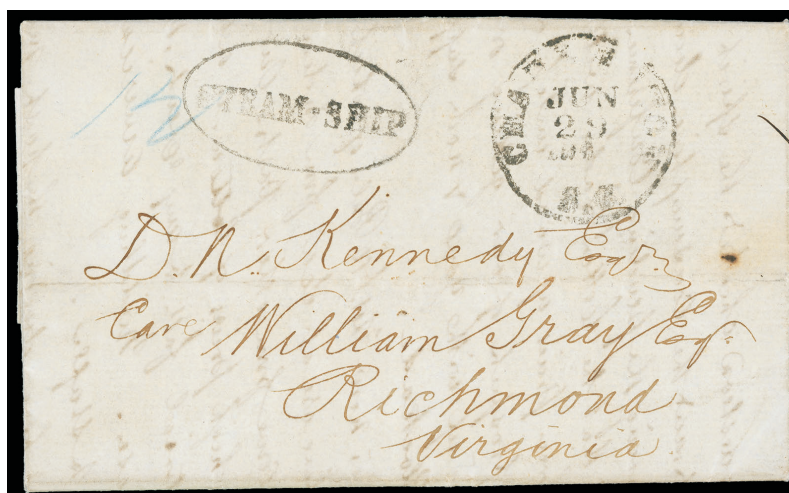 STEAM-SHIP
CHARLESTON
JUN
29
S.C.
D. N. Kennedy Esqr.
Care William Gray Esq.
Richmond
Virginia